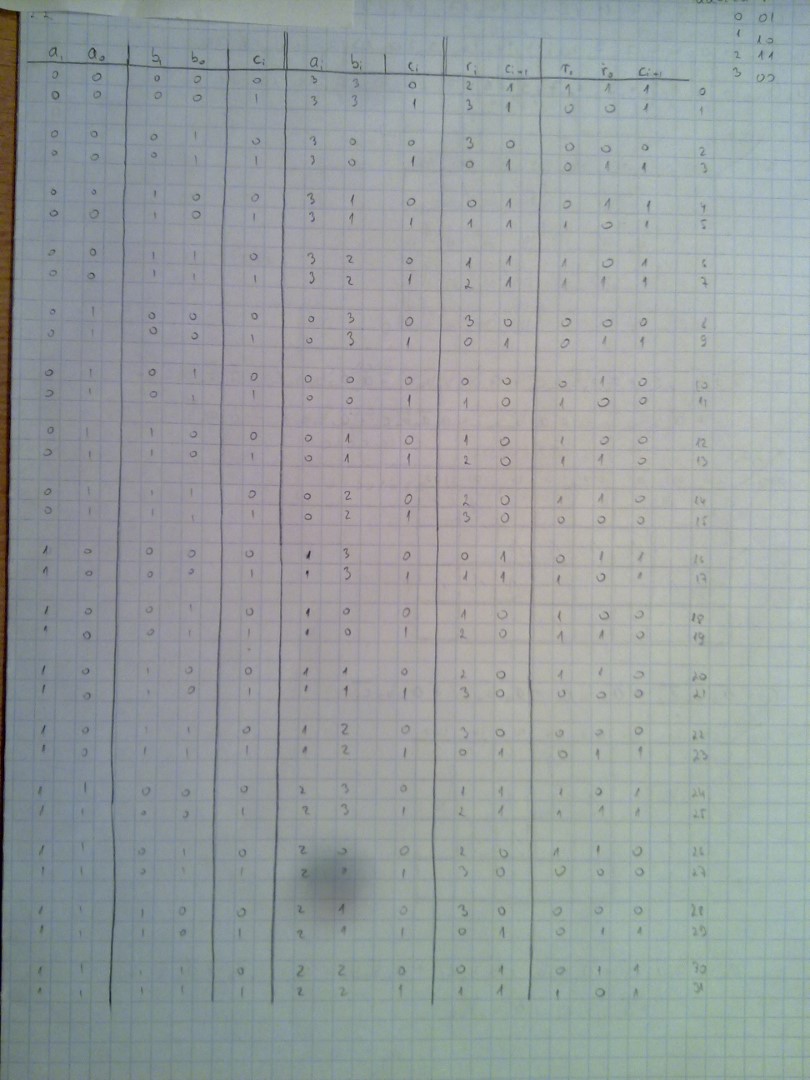 0 01
1 10
2 11
3 00
a₁ a₀ b₁ b₀ cᵢ aᵢ bᵢ cᵢ rᵢ cᵢ₊₁ r₁ r₀ cᵢ₊₁
0 0 0 0 0 3 3 0 2 1 1 1 1 0
0 0 0 0 1 3 3 1 3 1 0 0 1 1
0 0 0 1 0 3 0 0 3 0 0 0 0 2
0 0 0 1 1 3 0 1 0 1 0 1 1 3
0 0 1 0 0 3 1 0 0 1 0 1 1 4
0 0 1 0 1 3 1 1 1 1 1 0 1 5
0 0 1 1 0 3 2 0 1 1 1 0 1 6
0 0 1 1 1 3 2 1 2 1 1 1 1 7
0 1 0 0 0 0 3 0 3 0 0 0 0 8
0 1 0 0 1 0 3 1 0 1 0 1 1 9
0 1 0 1 0 0 0 0 0 0 0 1 0 10
0 1 0 1 1 0 0 1 1 0 1 0 0 11
0 1 1 0 0 0 1 0 1 0 1 0 0 12
0 1 1 0 1 0 1 1 2 0 1 1 0 13
0 1 1 1 0 0 2 0 2 0 1 1 0 14
0 1 1 1 1 0 2 1 3 0 0 0 0 15
1 0 0 0 0 1 3 0 0 1 0 1 1 16
1 0 0 0 1 1 3 1 1 1 1 0 1 17
1 0 0 1 0 1 0 0 1 0 1 0 0 18
1 0 0 1 1 1 0 1 2 0 1 1 0 19
1 0 1 0 0 1 1 0 2 0 1 1 0 20
1 0 1 0 1 1 1 1 3 0 0 0 0 21
1 0 1 1 0 1 2 0 3 0 0 0 0 22
1 0 1 1 1 1 2 1 0 1 0 1 1 23
1 1 0 0 0 2 3 0 1 1 1 0 1 24
1 1 0 0 1 2 3 1 2 1 1 1 1 25
1 1 0 1 0 2 0 0 2 0 1 1 0 26
1 1 0 1 1 2 1 3 0 0 0 0 27
1 1 1 0 0 2 1 0 3 0 0 0 0 28
1 1 1 0 1 2 1 1 0 1 0 1 1 29
1 1 1 1 0 2 2 0 0 1 0 1 1 30
1 1 1 1 1 2 2 1 1 1 1 0 1 31